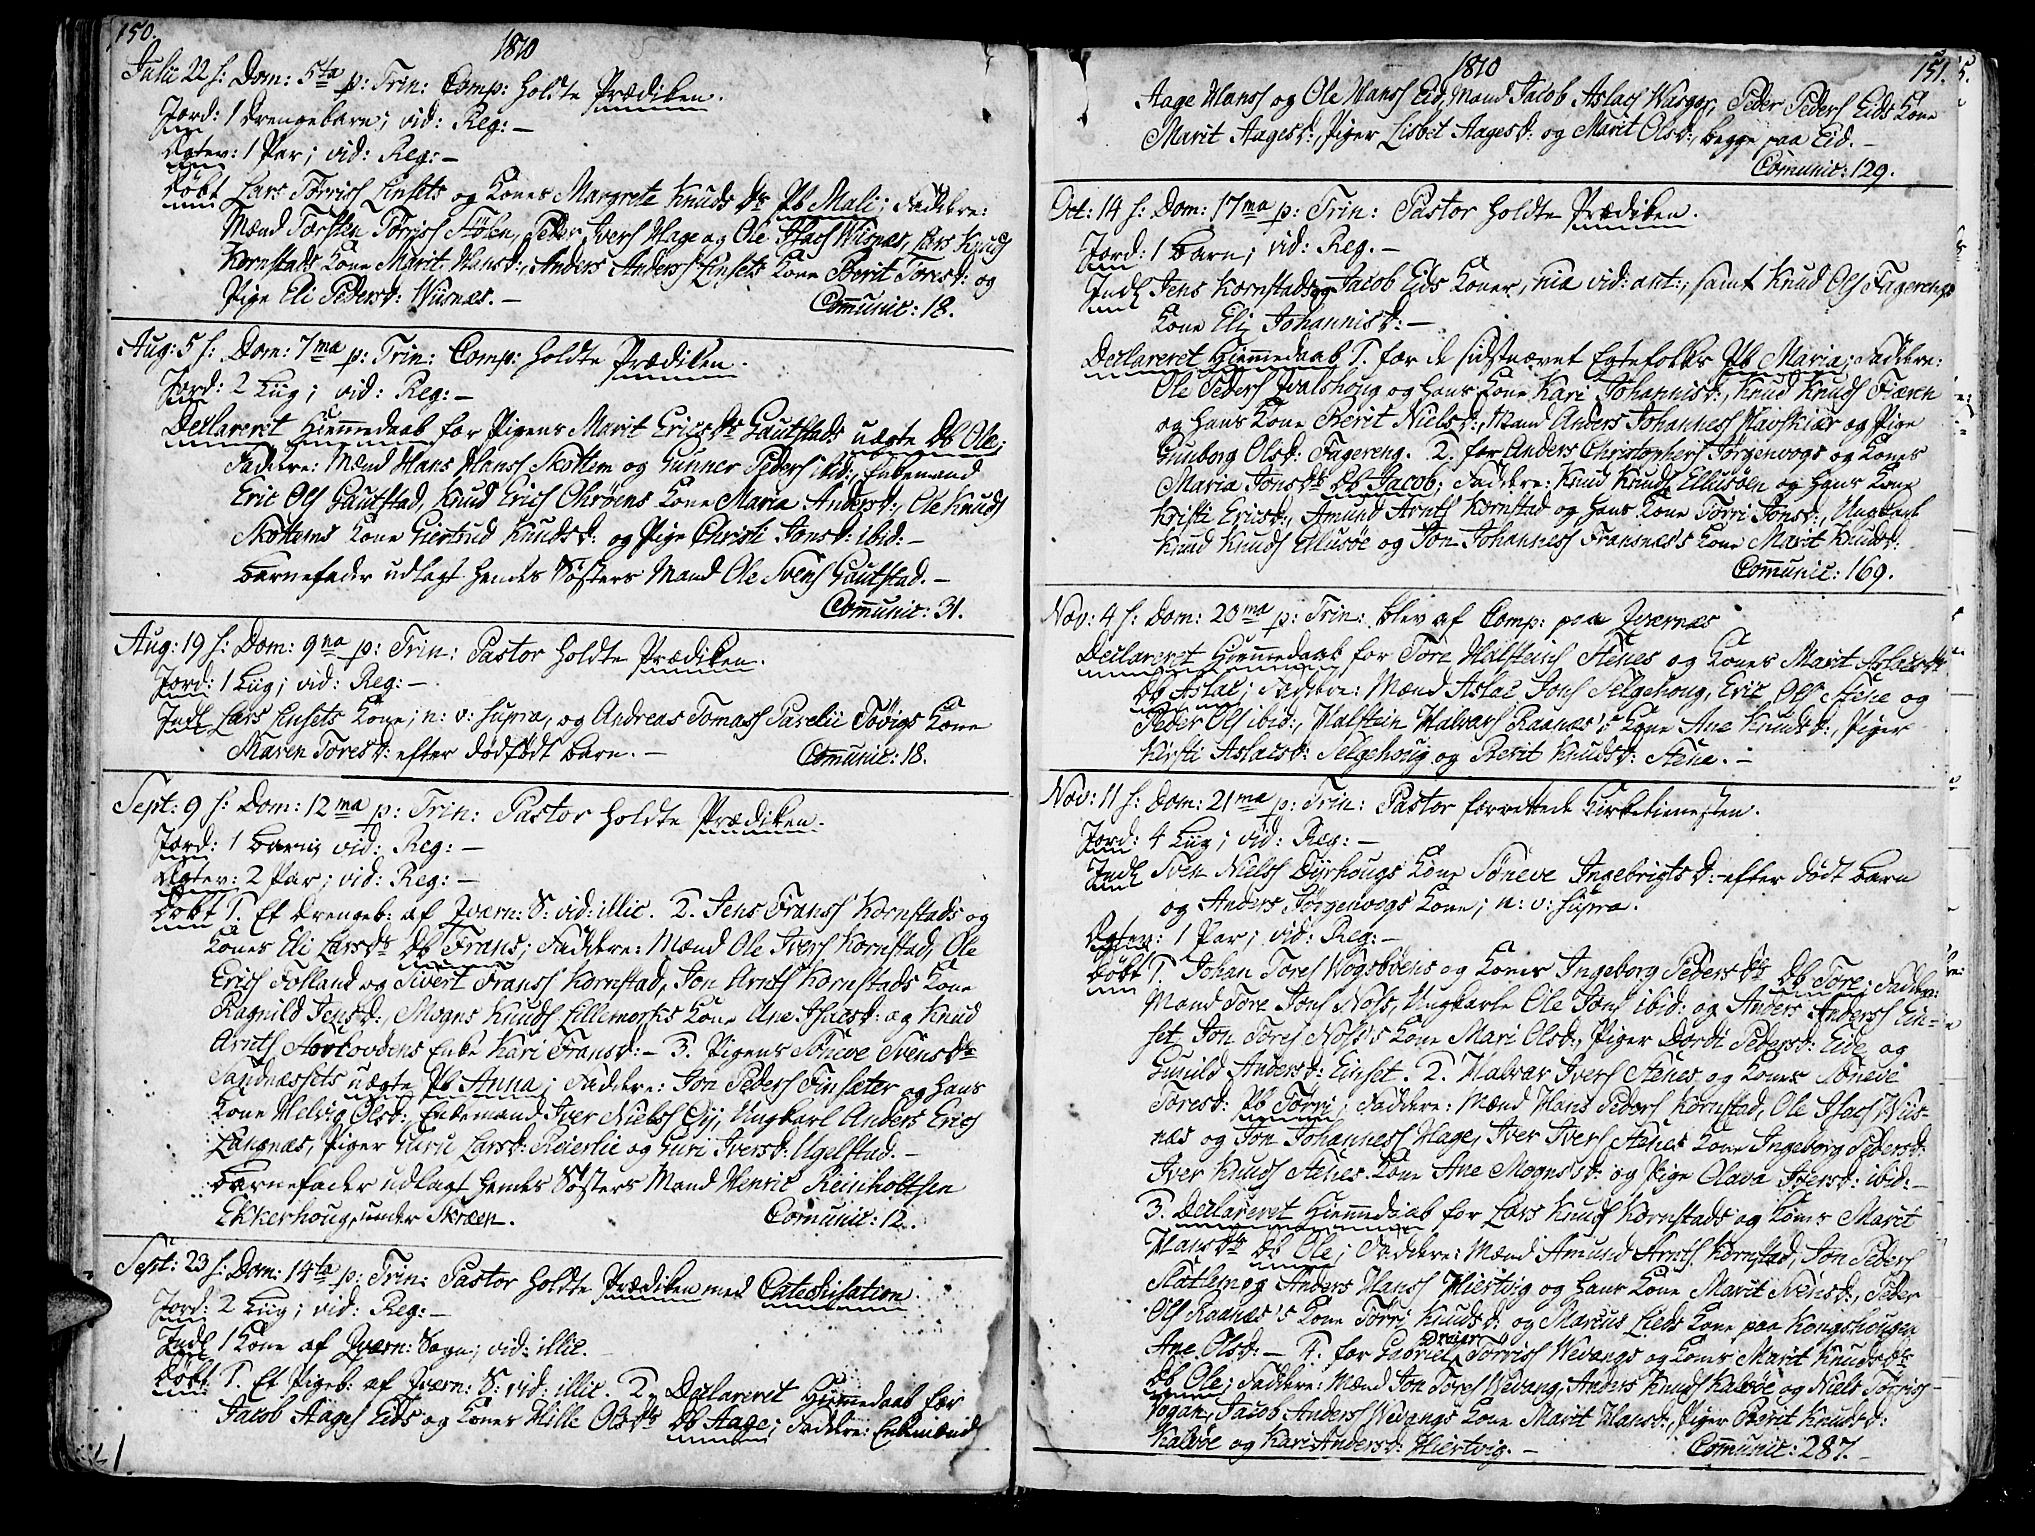 150.
1810
Julii 22 h: Dom: 5ta p: Trin: Comp: holdte Prædiken.
Jord: 1 drengebarn; vid: Reg: —
Egtev: 1 Par; vid: Reg: —
Døbt Lars Torrisß Einsets og Kones Margrete Knuds Dr Pb Mali; Faddere:
Mænd Torsten Torrisß Stölen, Peder Iversß Hage og Ole Isacß Wisnæs, Lars Knudß
Kornstads Kone Marit Hansd:, Anders Andersß Einsets Kone Berit Toresd: og
Pige Eli Pedersd: Wiisnæs. —
Com̄unic: 18.
Aug: 5 h: Dom: 7ma p: Trin: Comp: holdte Prædiken.
Jord: 2 Liig; vid: Reg: —
Declareret Hiem̄edaab for Pigens Marit Ericsdr Gautstads uægte Db Ole;
Faddere: Mænd Hans Hansß Skottem og Gunner Pedersß ibid:, Enkemand
Eric Olß Gautstad, Knud Ericß Ohröens Kone Maria Andersd:, Ole Knudß
Skottems Kone Giertrud Knudsd: og Pige Christi Jonsd: ibid: —
Barnefader udlagt hendes Søsters Mand Ole Svenß Gautstad. —
Com̄unic: 31.
Aug: 19 h: Dom: 9na p: Trin: Pastor holdte Prædiken.
Jord: 1 Liig; vid: Reg: —
Indl Lars Einsets Kone; n: v: supra, og Andreas Tomasß Parelii Tövigs Kone
Maren Toresd: efter dødfødt Barn. —
Com̄unic: 18.
Sept: 9 h: Dom: 12ma p: Trin: Pastor holdte Prædiken.
Jord: 1 Barn; vid: Reg: —
Egtev: 2 Par; vid: Reg: —
Døbt 1. Et drengeb: af Qværn: S: vid: illic. 2. Jens Fransß Kornstads og
Kones Eli Larsdr Db Frans; Faddere: Mænd Ole Iversß Kornstad, Ole
Ericß Folland og Sivert Fransß Kornstad, Jon Arntß Kornstads Kone
Ragnild Jensd:, Mogns Knudß Lillemorks Kone Ane Isacsd: og Knud
Arntß Enke Kari Fransd: — 3. Pigens Söneve Svensdr
Sandnæssets uægte Pb Anna; Faddere: Jon Pedersß Finsæter og hans
Kone Helvig Olsd:, Enkemand Iver Nielsß Öy, Ungkarl Anders Ericß
Langnæs, Piger Guru Larsd: Reierlie og Guri Iversd: Ugelstad. —
Barnefader udlagt hendes Søsters Mand Henric Reinholtsen
Ekkerhoug, under Skræen.
Com̄unic: 12.
Sept: 23 h: Dom: 14ta p: Trin: Pastor holdte Prædiken med Catechisation
Jord: 2 Liig; vid: Reg: —
Indl 1 Kone af Qværn: Sogn; vid: illic. —
Døbt 1. Et Pigeb: af Qværn: S: vid: illic. 2. Declareret Hiem̄edaab for
Jacob Aagesß Eids og Kones Mille Olsdr Db Aage; Faddere: Enkemænd
1810
151.
Aage Hansß og Ole Hansß Eid, Mand Jacob Aslacß, Peder Pedersß Eids Kone
Marit Aagesd:, Piger Lisbet Aagesd: og Marit Olsd:, begge paa Eid. —
Com̄unic: 129.
Oct: 14 h: Dom: 17ma p: Trin: Pastor holdte Prædiken.
Jord: 1 Barn; vid: Reg. —
Indl Jens Kornstads og Jacob Eids Koner, hia vid: ant:, samt Knud Olß Fagerengs
Kone Eli Johannisd: —
Declareret Hiem̄edaab 1. for de sidstnævnt Egtefolks Pb Maria; Faddere:
Ole Pedersß Hvalshoug og hans Kone Kari Johannisd:, Knud Knudß Fiæren
og hans Kone Berit Nielsd:, Mand Anders Johannesß Havskiær og Pige
Gunborg Olsd: Fagereng. 2. for Anders Christophersß Jörgenvogs og Kones
Maria Jonsdr Db Jacob; Faddere: Knud Knudß Ellusöen og hans Kone
Kristi Ericsd:, Amund Arntß Kornstad og hans Kone Torri Jonsd:, Ungkarl
Knud Knudß Ellusöe og Jon Johannesß Fransnæs's Kone Marit Knudsd:
Com̄unic: 169.
Nov: 4 h: Dom: 20ma p: Trin: blev af Comp: paa Qværnæs
Declareret Hiem̄edaab for Tore Halsteinß Stenes og Kones Marit Aslacsdr
Db Aslac; Faddere: Mænd Aslac Jonß Selgehoug, Eric Olß Stene og
Peder Olß ibid:, Halstein Halvarß Raanæs's Kone Ane Knudsd:, Piger
Kirsti Aslacsd: Selgehoug og Berit Knudsd: Stene. —
Nov: 11 h: Dom: 21ma p: Trin: Pastor forrettede Kirketienesten.
Jord: 4 Liig; vid: Reg: —
Indl Sven Nielsß Dyrhougs Kone Söneve Ingebrigtsd: efter dødt Barn
og Anders Jörgenvogs Kone; n: v: supra.
Egtev: 1 Par; vid: Reg: —
Døbt 1. Johan Toresß Wogsböens og Kones Ingeborg Pedersdr Db Tore; Faddere:
Mand Tore Jonß Noss, Ungkarle Ole Jonß ibid: og Anders Andersß Ein=
set, Jon Toresß Noss's Kone Mari Olsd:, Piger Dordi Pedersd: Eide og
Gunild Andersd: Einset. 2. Halvar Iversß Stenes og Kones Söneve
Toresd: Pb Torri; Faddere: Mænd Hans Pedersß Kornstad, Ole Isacß Wiis=
næs og Jon Johannesß Hage, Iver Iversß Stenes Kone Ingeborg Pedersd:
Iver Knudß Stenes Kone Ane Mognsd: og Pige Olava Iversd: ibid: —
3. Declareret Hiem̄edaab for Lars Knudß Kornstads og Kones Marit
Hansdr Db Ole; Faddere: Mænd Amund Arntß Kornstad, Jon Pedersß
Slatlem og Anders Hansß Hiertvig og hans Kone Marit Svensd:, Peder
Olß Raanæs's Kone Torri Knudsd: og Marcus Lieds Kone paa Kongshougen
Ane Olsd: — 4. for Gabriel Dreier Torrisß Wevangs og Kones Marit Knudsdr
Db Ole; Faddere: Mænd Jon Toresß Wevang, Anders Knudß Kalvöe og Niels Torrisß
Vogan, Jacob Andersß Wevangs Kone Marit Hansd:, Piger Berit Knudsd:
Kalvöe og Kari Andersd: Hiertvig. —
Com̄unic: 287. —